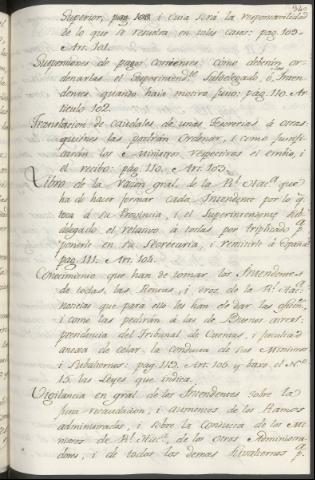 340
Superior, pag. 108 i cuia será la responsavilidad
de lo que se resuelva en tales casos: pag. 109
Art. 101.
Suspensiones de pagos corrientes: cómo deberán or-
denarlas el Superintend.te Subdelegado, ó los Inten-
dentes quando haia motivo justo: pag. 110. Ar-
ticulo 102.
Translacion de caudales de unas Tesorerias á otras
quiénes las podrán Ordenar, i como justifi-
carán los Ministros respectivos el envio, i
el recibo: pag. 110. Art. 103.
Libro de la Razon gral. de la Rl. Haz.a que
ha de hacer formar cada Intendente por lo q.e
toca á su Provincia, i el Superintendente Sub-
delegado el relativo á todas por triplicado p.a
ponerle en su Secretaria, i remitirle á España
pag. 111. Art. 104.
Conocimiento que han de tomar los Intendentes
de todas las Rentas, i dros. de la Rl. Haz.a
noticias que para ello les han de dar las oficin.s
i como las pedirán á las de Buenos aires
pendencia del Tribunal de Cuentas, i facultad
anexa de celar la conducta de sus Ministros
i Subalternos: pag. 112. Art. 105 y bajo el N.o
15. las Leyes que indica.
Vigilancia en gral. de los Intendentes sobre la
justa recaudacion, i aumentos de los Ramos
administrados, i sobre la Conducta de los Mi-
nistros de Rl. Haz.da, de los otros Administra-
dores, i de todos los demas Subalternos p.a